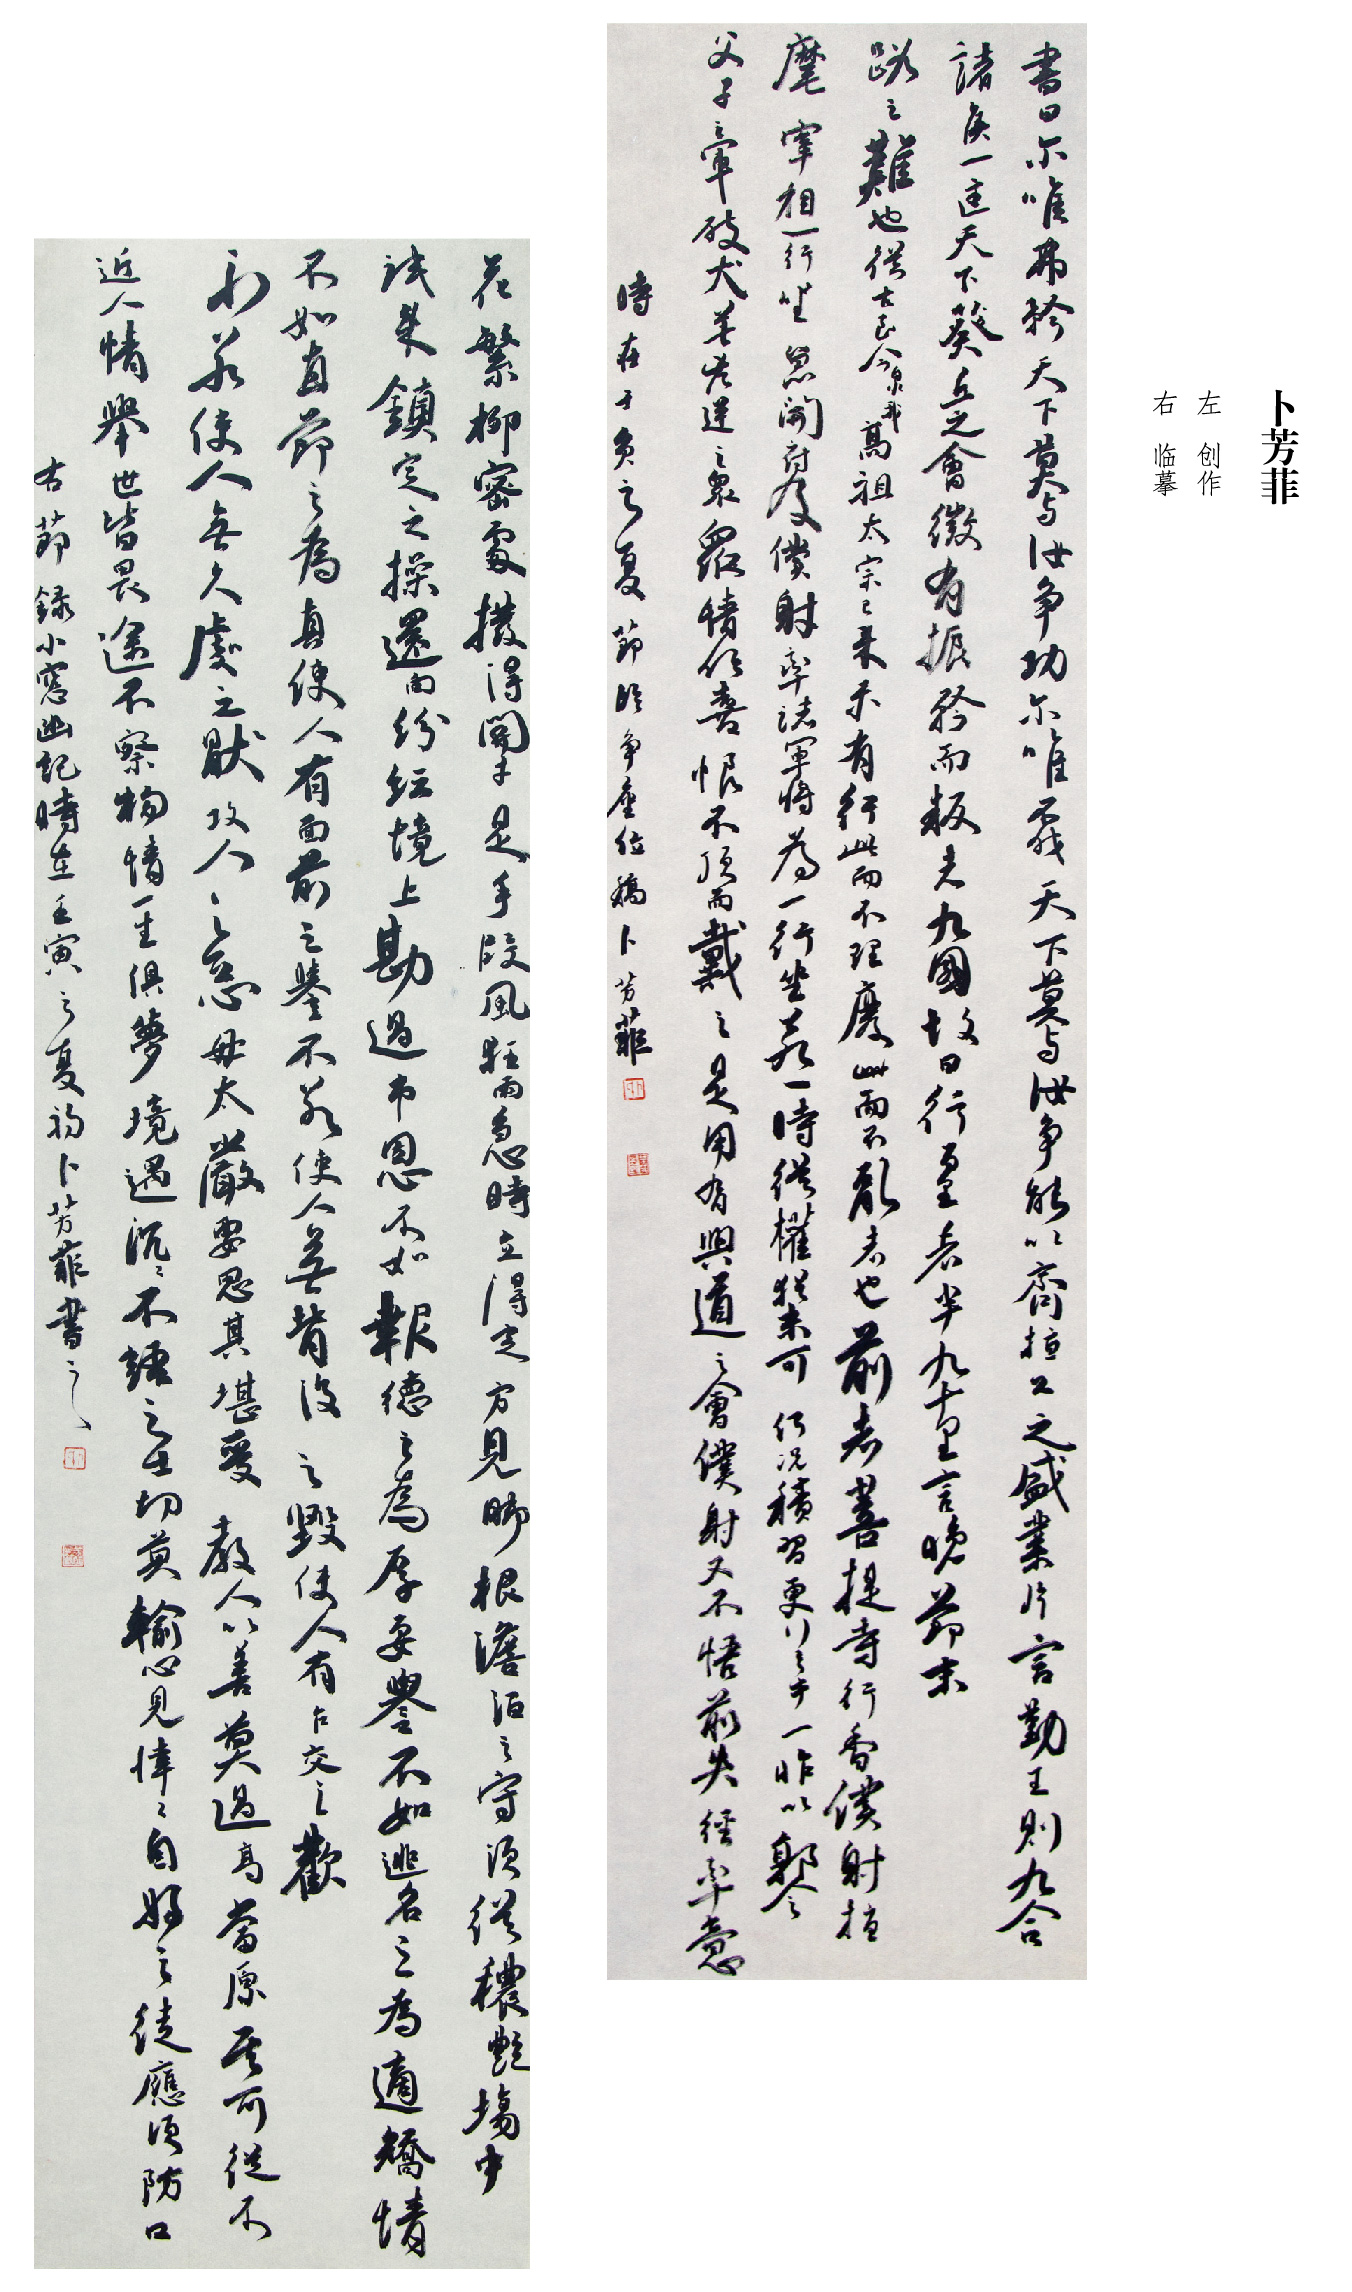 卜芳菲
左 创作
右 临摹
書曰尔唯弗矜天下莫与汝争功尔唯不伐天下莫与汝争能以齊桓公之盛業片言勤王則九合
諸侯一匡天下葵丘之會微有振矜而叛者九國故曰行百里者半九十里言晚節末
路之難也從古至今泉我高祖太宗已来未有行此而不理廢此而不亂者也前者菩提寺行香僕射指
麾宰相一行坐魚開府及僕射率諸軍將為一行坐若一時從權猶未可何況積習更行之乎一昨以郭令
父子之軍破犬羊凶逆之衆衆情欣喜恨不頂而戴之是用有興道之會僕射又不悟前失徑率意
時在壬寅之夏節临争座位稿卜芳菲
花繁柳密處撥得開才是手段風狂雨急時立得定方見脚根澹泊之守須從穠艷場中
試来鎮定之操還向紛紜境上勘過市恩不如報德之為厚要譽不如逃名之為適矯情
不如直節之為真使人有面前之譽不若使人無背後之毀使人有乍交之歡
不若使人無久處之厭攻人之惡毋太嚴要思其堪受教人以善莫過高當原其可從不
近人情舉世皆畏途不察物情一生俱夢境遇沉沉不語之士切莫輸心見悻悻自好之徒應須防口
右節録小窓幽記時在壬寅之夏初卜芳菲書之